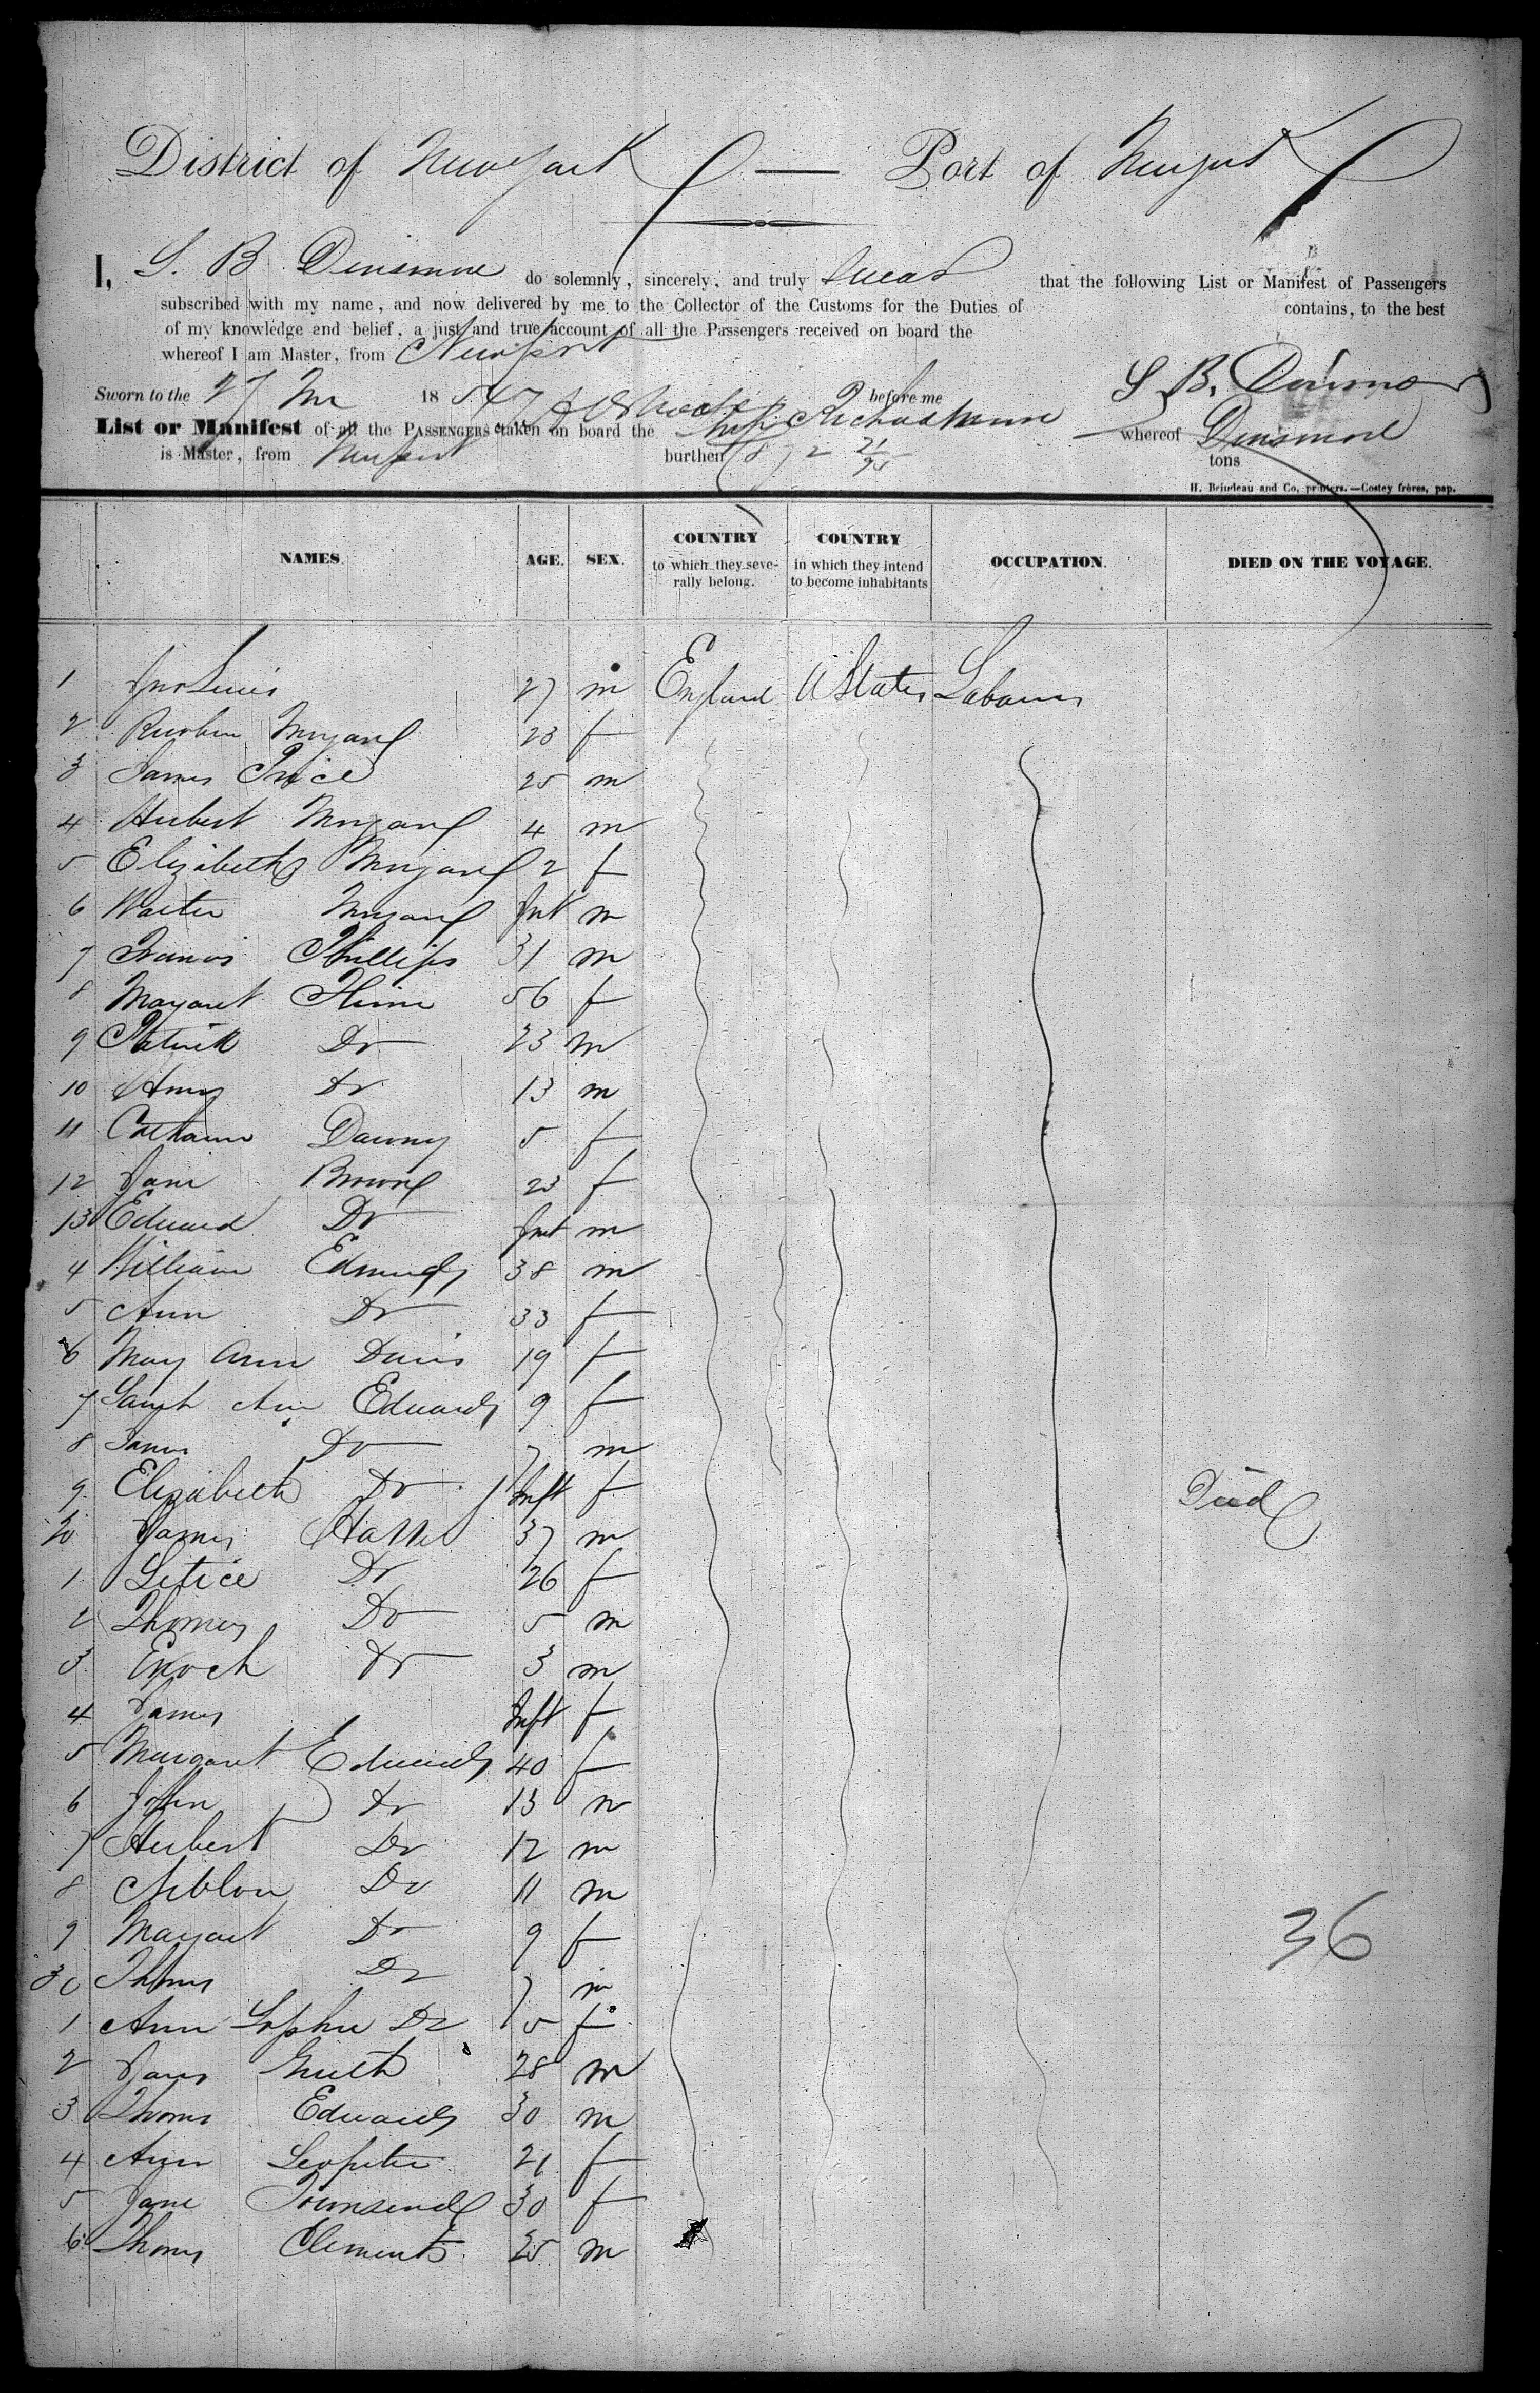 District of New York — Port of New York
I, S. B Dinsmore do solemnly, sincerely, and truly swear that the following List or Manifest of Passengers
subscribed with my name, and now delivered by me to the Collector of the Customs for the Duties of contains, to the best
of my knowledge and belief, a just and true account of all the Passengers received on board the
whereof I am Master, from Newport
Sworn to the 27 18 before me S B. Dinsmore
List or Manifest of all the PASSENGERS taken on board the Ship whereof Dinsmore
is Master, from Newport burthen 21/95 tons
H. Brindeau and Co, printers.—Costey frères, pap.
NAMES. AGE. SEX. COUNTRY to which they severally belong. COUNTRY in which they intend to become inhabitants OCCUPATION. DIED ON THE VOYAGE.
1 Jno Lewis 27 m England U States Labourer
2 Reuben Morgan 23 f
3 James Price 25 m
4 Herbert Morgan 4 m
5 Elizabeth Morgan 2 f
6 Walter Morgan Inft m
7 Francis Phillips 31 m
8 Margaret 56 f
9 Patrick Do 23 m
10 Do 13 m
11 Catharine 5 f
12 Jane Brown 23 f
13 Edward Do Inft m
4 William Edmunds 38 m
5 Ann Do 33 f
6 Mary Ann Davis 19 f
7 Sarah Ann Edwards 9 f
8 James Do 7 m
9 Elizabeth Do Inft f Died
20 James 37 m
1 Letice Do 26 f
2 Thomas Do 5 m
3 Enoch Do 3 m
4 James Inft f
5 Margaret Edwards 40 f
6 John Do 13 m
7 Herbert Do 12 m
8 Do 11 m
9 Margaret Do 9 f
36
30 Thomas Do 7 m
1 Ann Sophia Do 5 f
2 28 m
3 Thomas Edwards 30 m
4 Ann 21 f
5 Jane Townsend 30 f
6 Thomas Clements 25 m